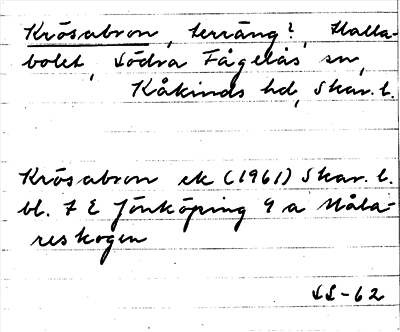 Krösabron, terräng?, Halla-
bolet, Södra Fågelås sn,
Kåkinds hd, Skar. l.
Krösabron ek (1961) Skar. l.
bl. 7 E Jönköping 9 a Måla-
reskogen
SL-62